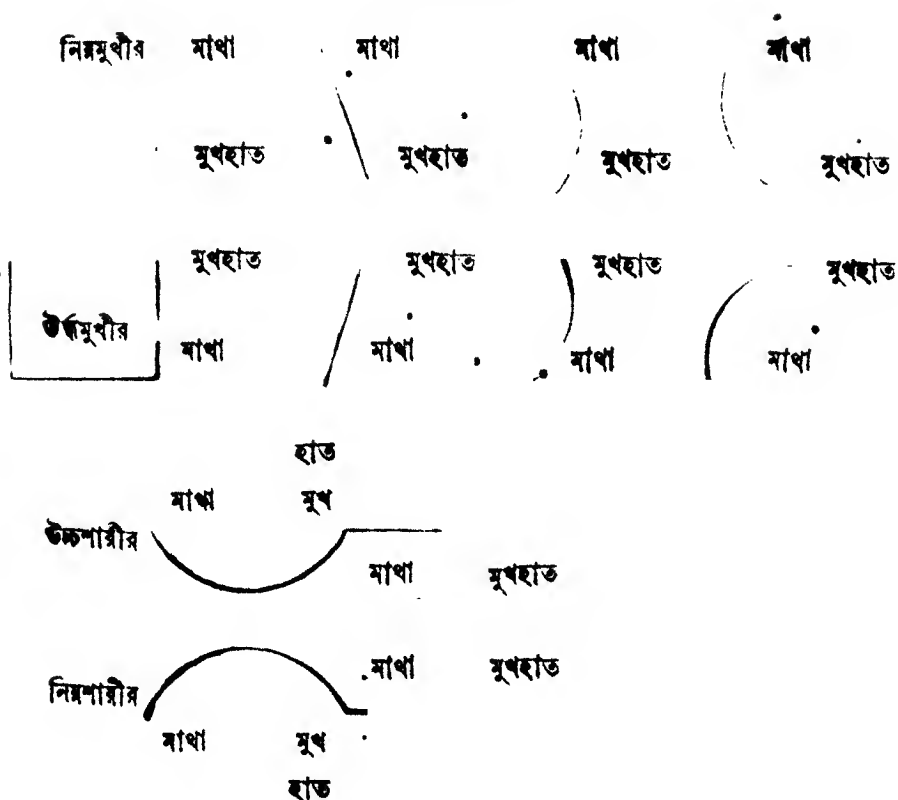 নিম্নমুখীর মাথা মাথা মাথা মাথা
মুখহাত মুখহাত মুখহাত মুখহাত
মুখহাত মুখহাত মুখহাত মুখহাত
ঊর্দ্ধমুখীর মাথা মাথা মাথা মাথা
হাত
মাথা মুখ
উচ্চশারীর
মাথা মুখহাত
মাথা মুখহাত
নিম্নশারীর
মাথা মুখ
হাত